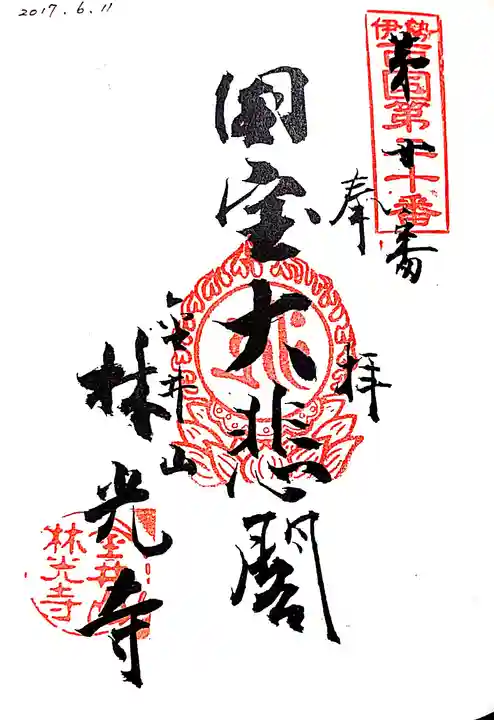 2017.6.11
伊勢
西国第二十番
第廿番
奉
拝
国宝大悲閣
金井山
林光寺
金井山
林光寺